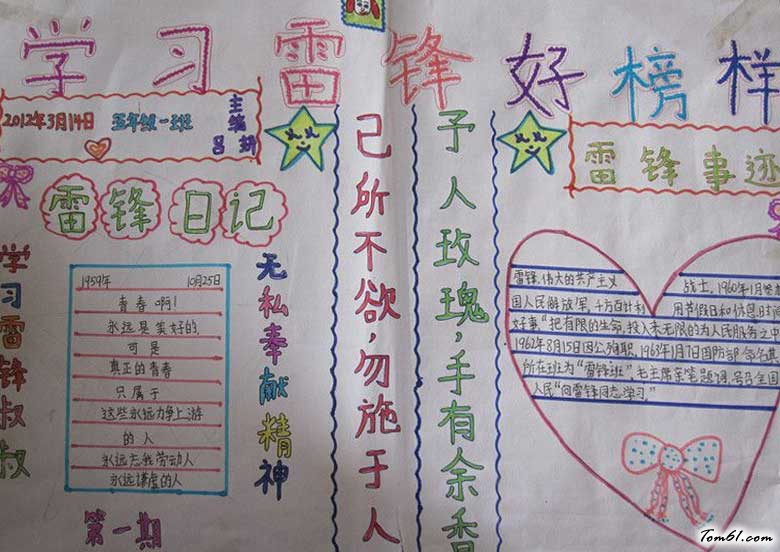 学习雷锋好榜样
2012年3月14日 五年级一班
主编
吕妍
雷锋日记
学习雷锋叔叔
1959年 10月25日
青春啊!
永远是美好的,
可是
真正的青春
只属于
这些永远力争上游
的人
永远忘我劳动人
永远谦虚的人
无私奉献精神
第一期
己所不欲,勿施于人
予人玫瑰,手有余香
雷锋事迹
雷锋,伟大的共产主义 战士,1960年1月参加
国人民解放军,千方百计利 用节假日和休息时间
好事“把有限的生命,投入到无限的为人民服务之中
1962年8月15日因公殉职,1963年1月7日国防部命名
所在班为“雷锋班”,毛主席亲笔题词,号召全国
人民“向雷锋同志学习”
Tom61.com